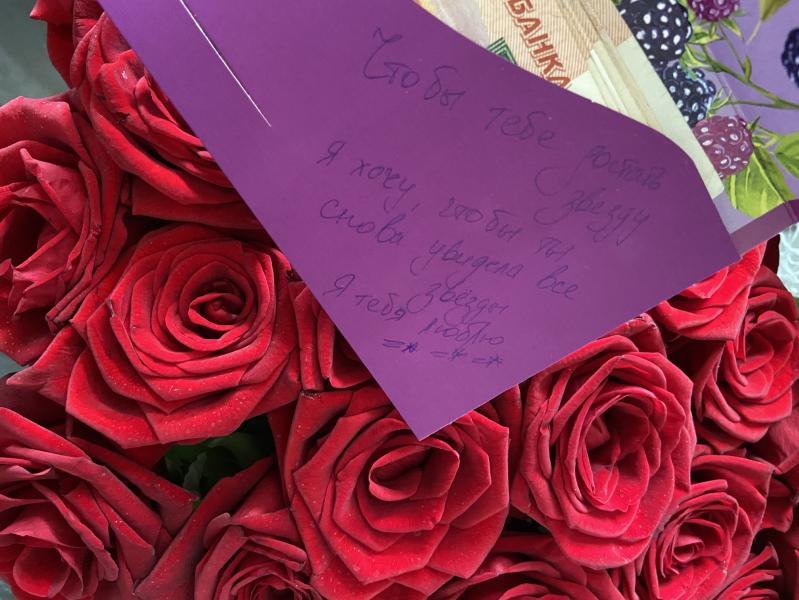 БАНКА
Чтобы тебе достать
звезду
Я хочу, чтобы ты
снова увидела все
звёзды
Я тебя люблю
=* =* =*